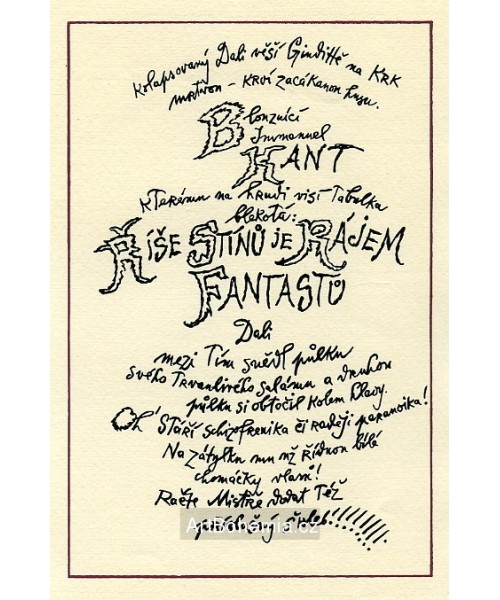 Kolapsovaný Dali věší Gindittě na KRK
mrtvou - krví zacákanou husu.
Blouznící
Immanuel
KANT
kterému na hrudi visí Tabulka
blekotá:
ŘÍŠE STÍNŮ JE RÁJEM
FANTASTŮ
Dali
mezi Tím snědl půlku
svého Trvanlivého salámu a druhou
půlku si obtočil kolem hlavy.
Oh' STáří schizofrenika či raději paranoika!
Na zátylku mu už řídnou bílé
chomáčky vlasů!
Račte Mistře dodat Též
ArtBohemia.cz